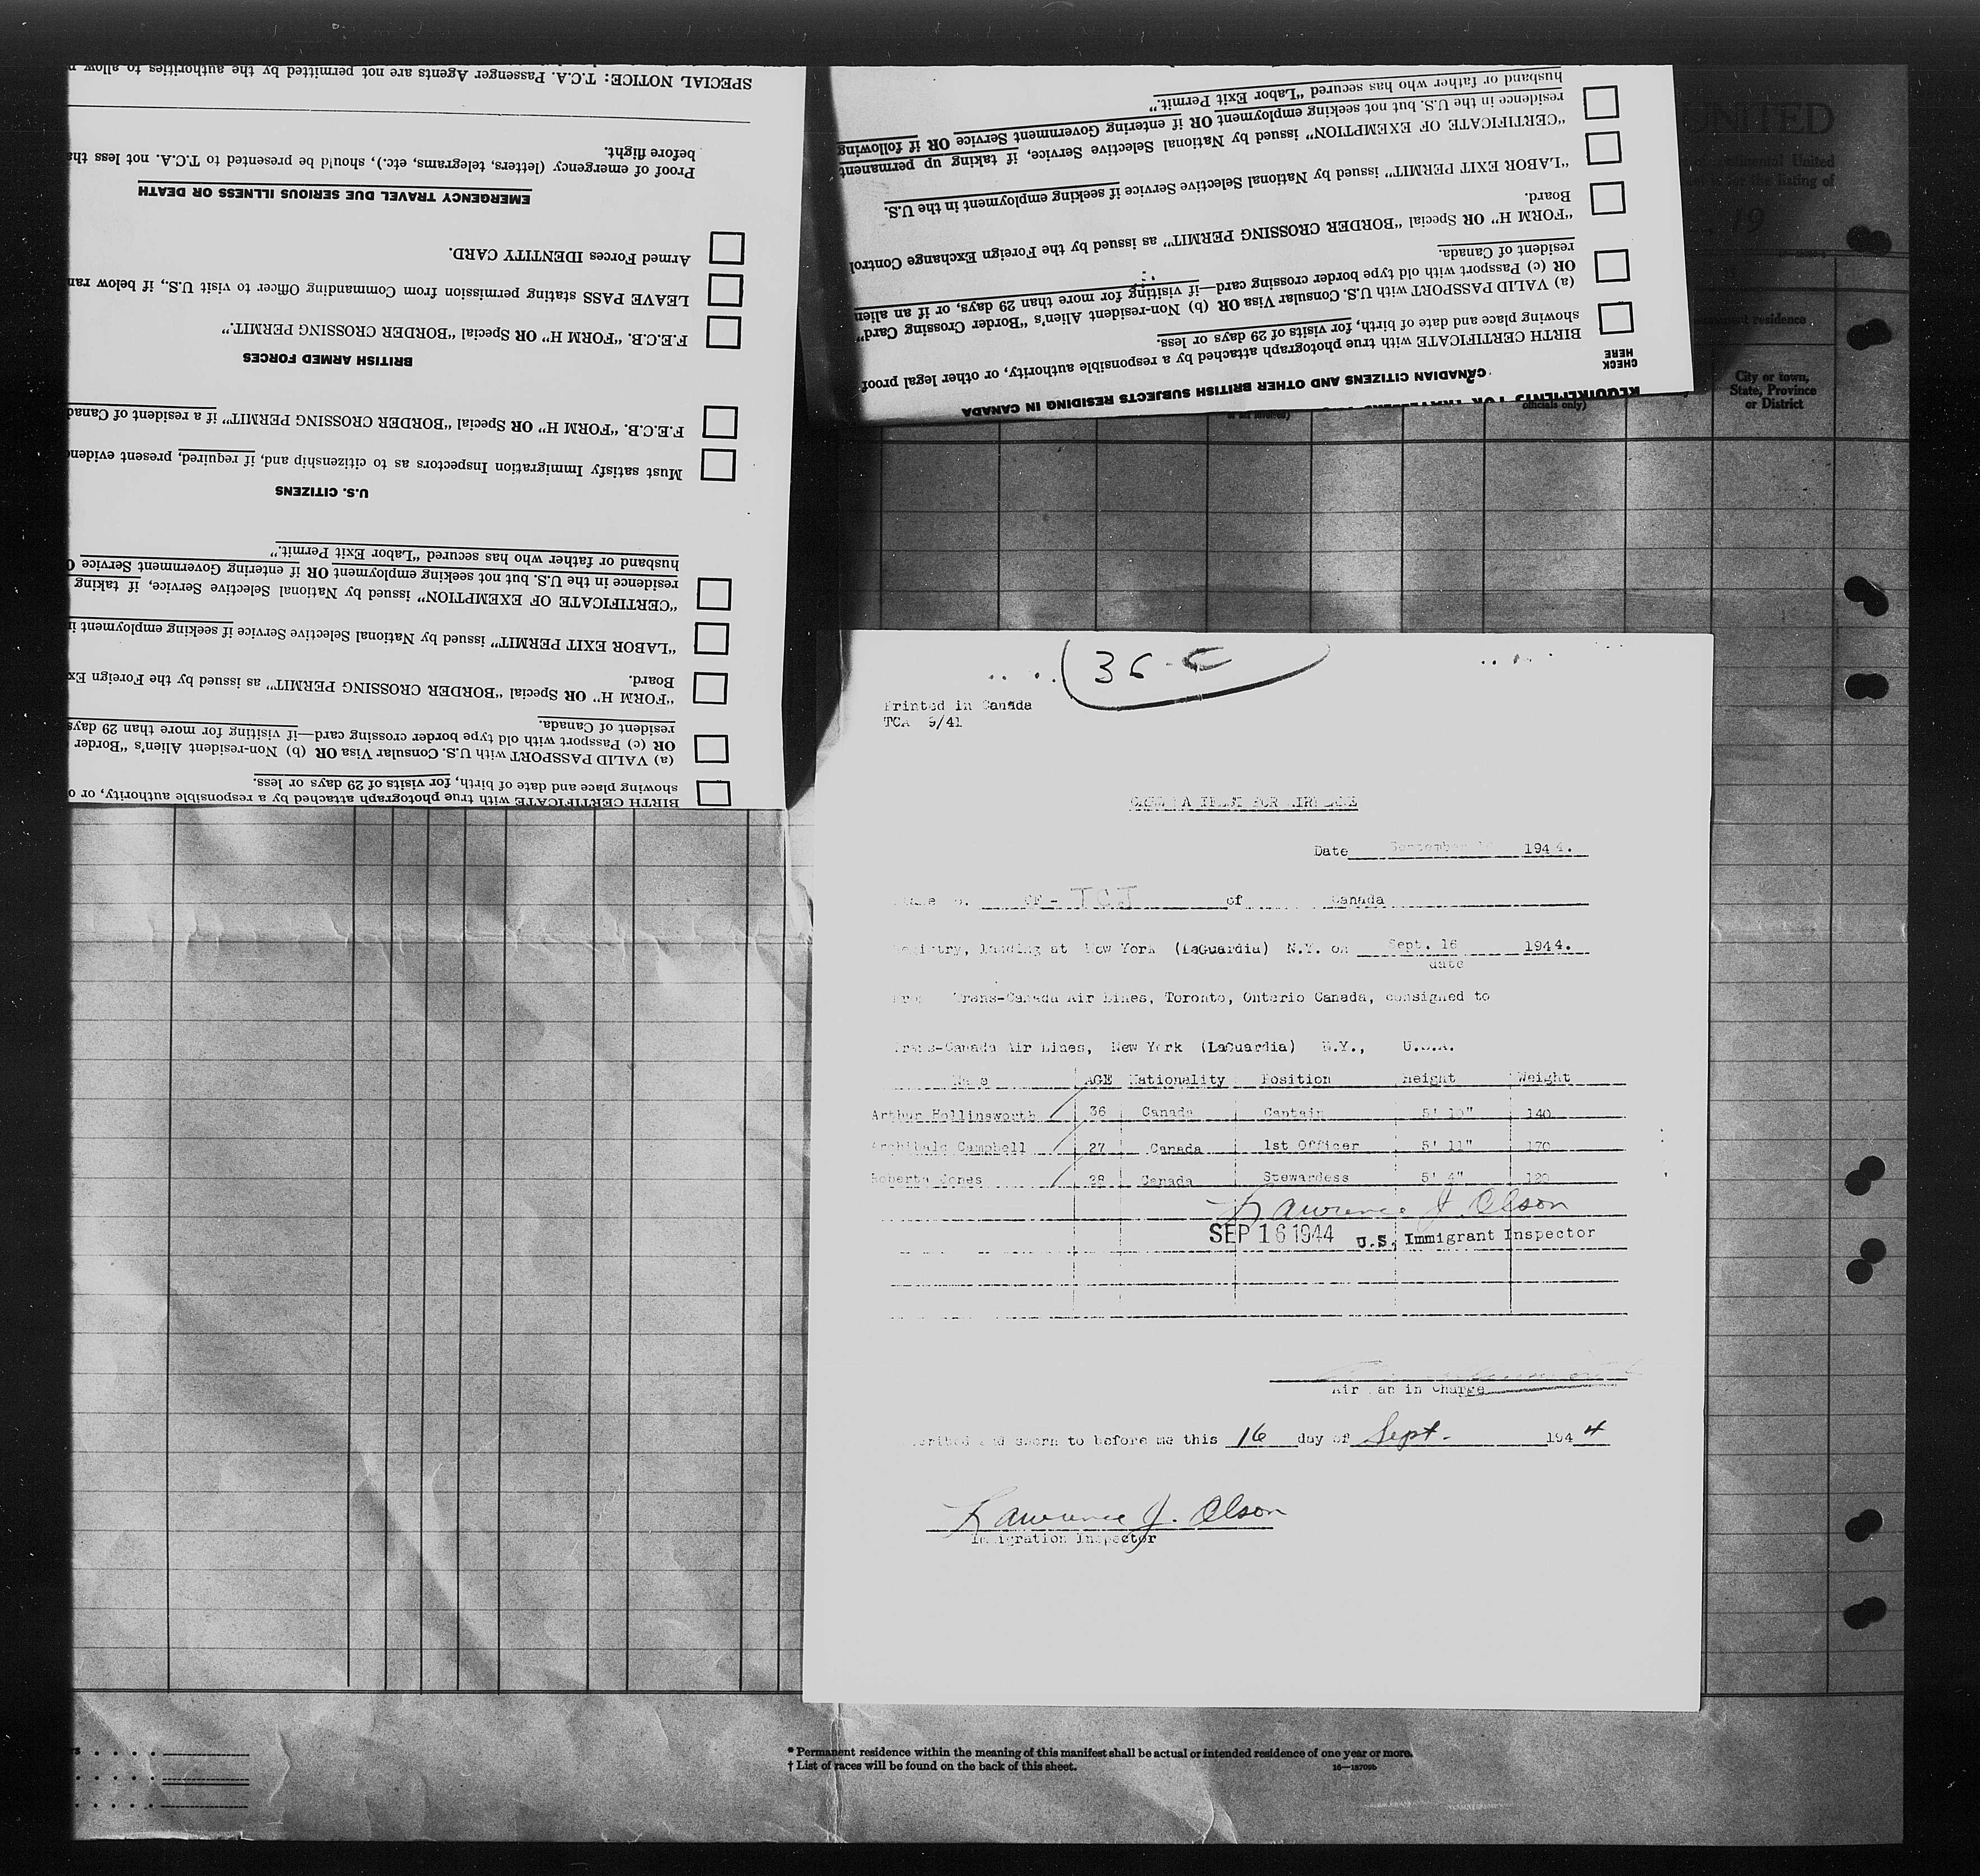 SPECIAL NOTICE: T.C.A. Passenger Agents are not permitted by the authorities to allow
before flight.
Proof of emergency (letters, telegrams, etc.), should be presented to T.C.A. not less
EMERGENCY TRAVEL DUE SERIOUS ILLNESS OR DEATH
Armed Forces IDENTITY CARD.
LEAVE PASS stating permission from Commanding Officer to visit U.S., if below
F.E.C.B. "FORM H" OR Special "BORDER CROSSING PERMIT."
BRITISH ARMED FORCES
F.E.C.B. "FORM H" OR Special "BORDER CROSSING PERMIT" if a resident of
Must satisfy Immigration Inspectors as to citizenship and, if required, present
U.S. CITIZENS
husband or father who has secured "Labor Exit Permit."
residence in the U.S. but not seeking employment OR if entering Government Service
"CERTIFICATE OF EXEMPTION" issued by National Selective Service, if taking
"LABOR EXIT PERMIT" issued by National Selective Service if seeking employment
Board.
"FORM H" OR Special "BORDER CROSSING PERMIT" as issued by the Foreign
resident of Canada.
OR (c) Passport with old type border crossing card—if visiting for more than 29 days
(a) VALID PASSPORT with U.S. Consular Visa OR (b) Non-resident Alien's "Border
showing place and date of birth, for visits of 29 days or less.
BIRTH CERTIFICATE with true photograph attached by a responsible authority, or
husband or father who has secured "Labor Exit Permit."
residence in the U.S. but not seeking employment OR if entering Government Service OR if following
"CERTIFICATE OF EXEMPTION" issued by National Selective Service, if taking up permanent
"LABOR EXIT PERMIT" issued by National Selective Service if seeking employment in the U.S.
Board.
"FORM H" OR Special "BORDER CROSSING PERMIT" as issued by the Foreign Exchange Control
resident of Canada.
OR (c) Passport with old type border crossing card—if visiting for more than 29 days, or if an alien
(a) VALID PASSPORT with U.S. Consular Visa OR (b) Non-resident Alien's "Border Crossing Card"
showing place and date of birth, for visits of 29 days or less.
BIRTH CERTIFICATE with true photograph attached by a responsible authority, or other legal proof
CHECK HERE
CANADIAN CITIZENS AND OTHER BRITISH SUBJECTS RESIDING IN CANADA
REQUIREMENTS FOR
UNITED
United
the listing of
19
residence
officials only)
City or town,
State, Province
or District
36-C
Printed in Canada
TCA 9/41
FOR
Date September 1944.
CF-TCJ of Canada
landing at New York (LaGuardia) N.Y. on Sept. 16 1944.
date
Trans-Canada Air Lines, Toronto, Ontario Canada, consigned to
Trans-Canada Air Lines, New York (LaGuardia) N.Y., U.S.A.
Name AGE Nationality Position Height Weight
Arthur Hollinsworth 36 Canada Captain 5' 10" 140
Archibald Campbell 27 Canada 1st Officer 5' 11" 170
Roberta Jones 28 Canada Stewardess 5' 4" 120
Lawrence J. Olson
SEP 16 1944 U.S. Immigrant Inspector
in Charge
and sworn to before me this 16 day of Sept. 1944
Lawrence J. Olson
Immigration Inspector
* Permanent residence within the meaning of this manifest shall be actual or intended residence of one year or more.
† List of races will be found on the back of this sheet.
16—18709b